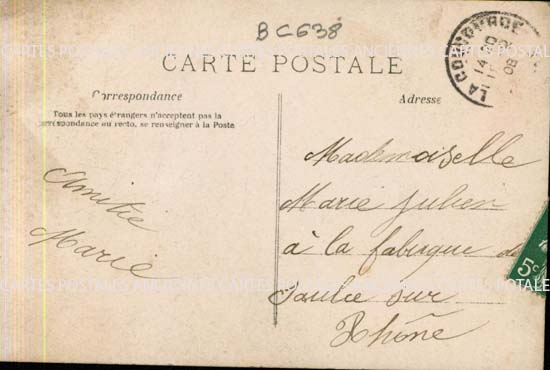 BC638
CARTE POSTALE
Correspondance
Tous les pays étrangers n'acceptent pas la
correspondance au recto, se renseigner à la Poste
Adresse
Amitié
Marie
Mademoiselle
Marie Julien
à la fabrique de
Saulce sur
Rhône
LA
14
08
5c
CARTES POSTALES ANCIENNES